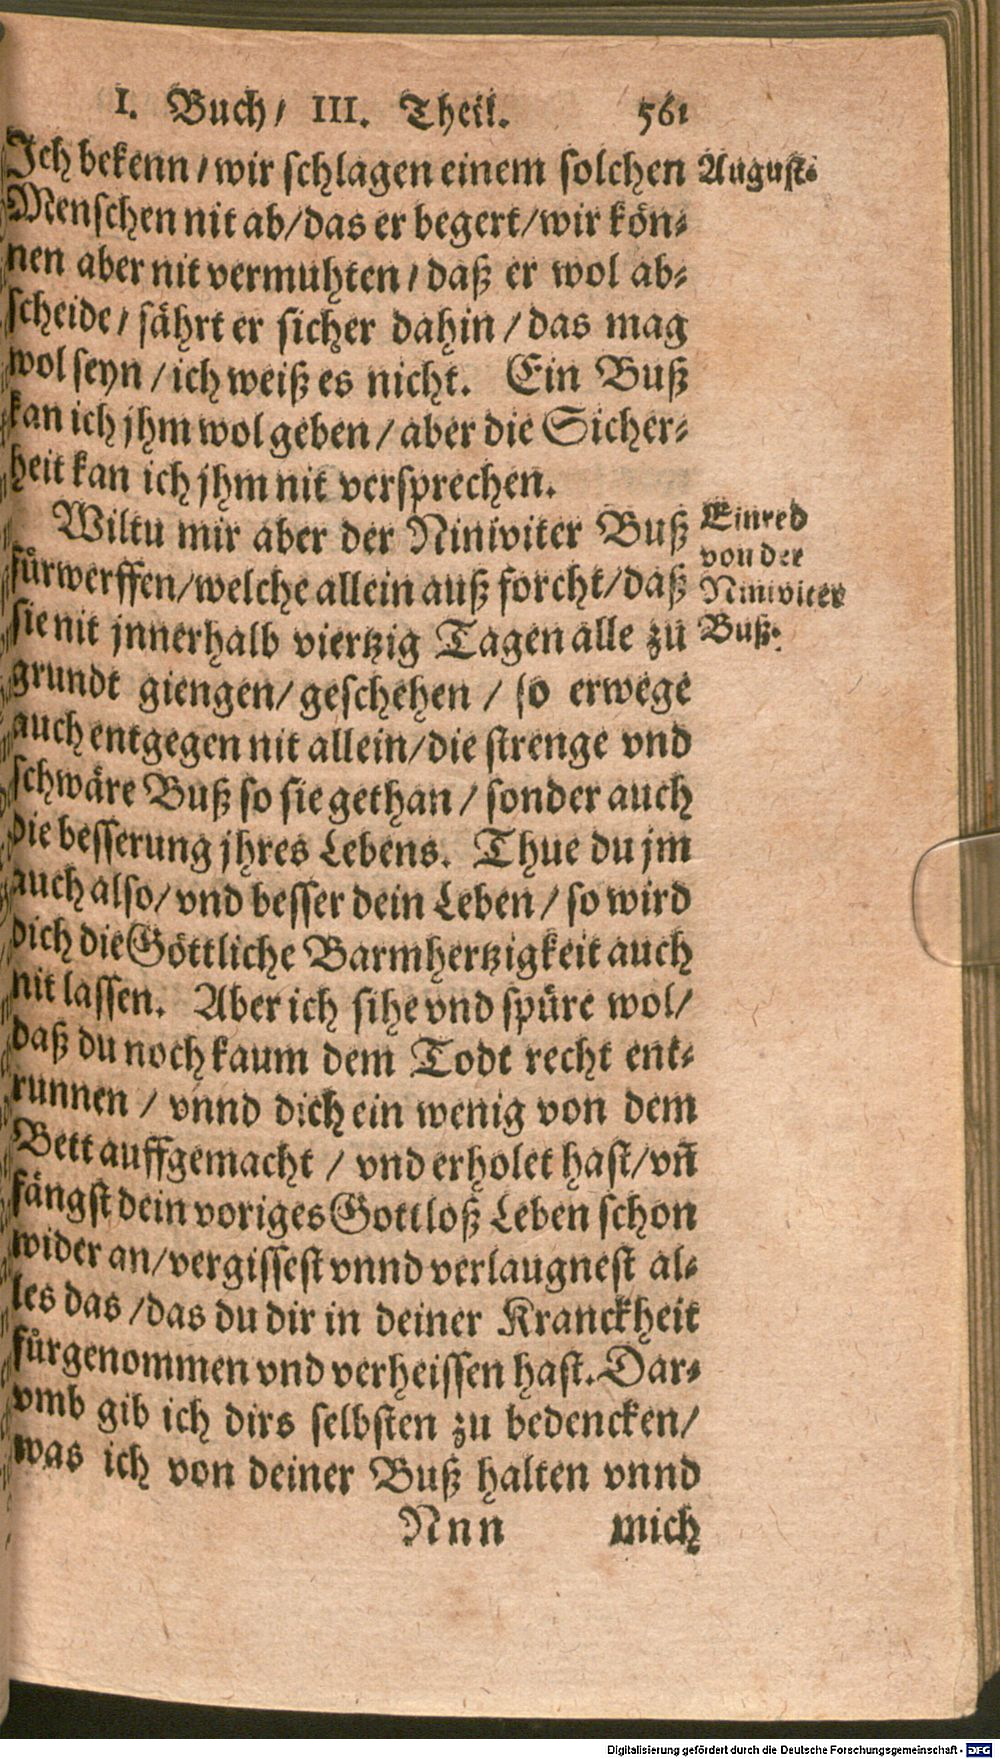 I. Buch/ III. Theil. 561
Ich bekenn/wir schlagen einem solchen
Augusti
Menschen nit ab/das er begert/wir kön-
nen aber nit vermuhten/daß er wol ab-
scheide/fährt er sicher dahin/das mag
wol seyn/ich weiß es nicht. Ein Buß
kan ich jhm wol geben/aber die Sicher-
heit kan ich jhm nit versprechen.
Wiltu mir aber der Niniviter Buß
Einred
von der
Niniviter
Buß.
fürwerffen/welche allein auß forcht/daß
sie nit jnnerhalb viertzig Tagen alle zu
grundt giengen/geschehen/so erwege
auch entgegen nit allein/die strenge vnd
schwäre Buß so sie gethan/sonder auch
die besserung jhres Lebens. Thue du jm
auch also/vnd besser dein Leben/so wird
dich die Göttliche Barmhertzigkeit auch
nit lassen. Aber ich sihe vnd spüre wol/
daß du noch kaum dem Todt recht ent-
runnen/vnnd dich ein wenig von dem
Bett auffgemacht/vnd erholet hast/vn̄
fängst dein voriges Gottloß Leben schon
wider an/vergissest vnnd verlaugnest al-
les das/das du dir in deiner Kranckheit
fürgenommen vnd verheissen hast. Dar-
vmb gib ich dirs selbsten zu bedencken/
was ich von deiner Buß halten vnnd
Nnn mich
Digitalisierung gefördert durch die Deutsche Forschungsgemeinschaft - DFG